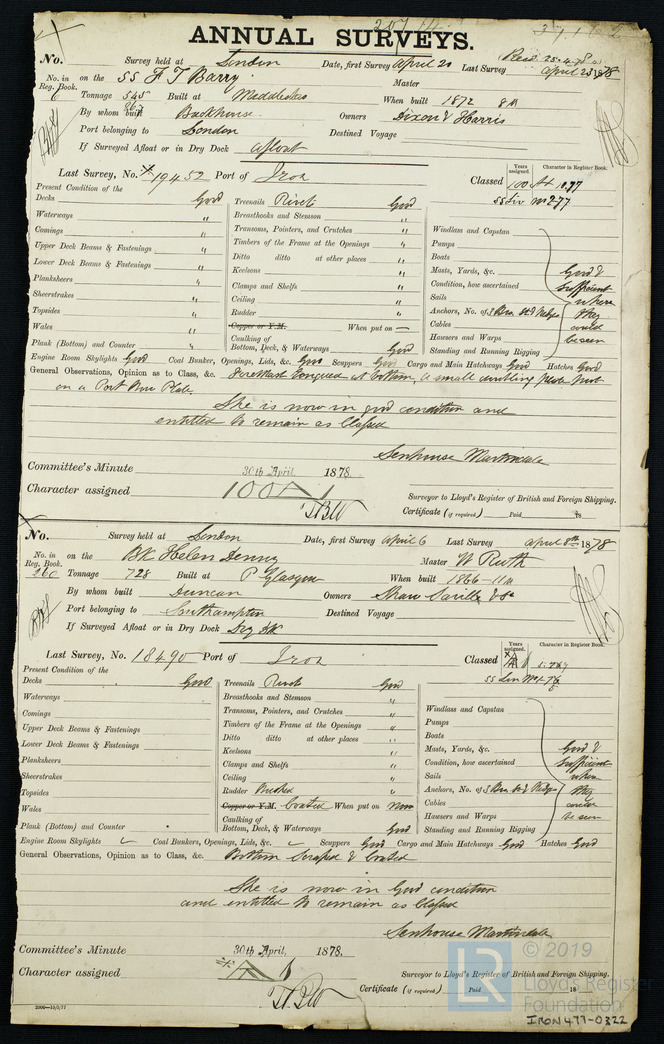 ANNUAL SURVEYS.
No. Survey held at London Date, first Survey April 20 Last Survey April 23 1878
Recd. 25.4.78
No. in Reg. Book. on the SS F T Barry Master
Tonnage 545 Built at Middlesbro When built 1872 8 M
By whom built Backhouse Owners Dixon & Harris
Port belonging to London Destined Voyage
If Surveyed Afloat or in Dry Dock afloat
Last Survey, No. 19452 Port of Iron Classed Years assigned. Character in Register Book.
100 A1 1,77
SS Liv No 2-77
Present Condition of the
Decks Good Treenails Rivets Good
Waterways " Breasthooks and Stemson " Windlass and Capstan
Comings " Transoms, Pointers, and Crutches " Pumps
Upper Deck Beams & Fastenings " Timbers of the Frame at the Openings " Boats
Lower Deck Beams & Fastenings " Ditto ditto at other places " Masts, Yards, &c. Good &
Planksheers " Keelsons " Condition, how ascertained sufficient
Sheerstrakes " Clamps and Shelfs " Sails where
Topsides " Ceiling " Anchors, No. of 3 Brs. St & Kedge they
Wales " Rudder " Cables could
Copper or Y.M. When put on — Hawsers and Warps be seen
Plank (Bottom) and Counter " Caulking of Bottom, Deck, & Waterways Good Standing and Running Rigging
Engine Room Skylights Good Coal Bunker, Openings, Lids, &c. Good Scuppers Good Cargo and Main Hatchways Good Hatches Good
General Observations, Opinion as to Class, &c. Foremast Tongued at bottom, a small doubling plate put
on a Port Bow Plate.
She is now in good condition and
entitled to remain as Classed
Senhouse Martindale
Committee's Minute 30th April 1878.
Character assigned 100 A 1
Surveyor to Lloyd's Register of British and Foreign Shipping.
Certificate (if required) Paid is
No. Survey held at London Date, first Survey April 6 Last Survey April 8th 1878
No. in Reg. Book. on the Bk Helen Denny Master W Ruth
260 Tonnage 728 Built at P Glasgow When built 1866 11 M
By whom built Duncan Owners Shaw Saville & Co
Port belonging to Southampton Destined Voyage
If Surveyed Afloat or in Dry Dock Dry Dk
Last Survey, No. 18490 Port of Iron Classed Years assigned. Character in Register Book.
SS Lon
Present Condition of the
Decks Good Treenails Rivets Good
Waterways Breasthooks and Stemson " Windlass and Capstan
Comings Transoms, Pointers, and Crutches " Pumps
Upper Deck Beams & Fastenings Timbers of the Frame at the Openings " Boats
Lower Deck Beams & Fastenings Ditto ditto at other places " Masts, Yards, &c. Good &
Planksheers Keelsons " Condition, how ascertained sufficient
Sheerstrakes Clamps and Shelfs " Sails where
Topsides Ceiling " Anchors, No. of 3 Brs. St & Kedge they
Wales Rudder Bushed Cables could
Copper or Y.M. Coated When put on Now Hawsers and Warps be seen
Plank (Bottom) and Counter Caulking of Bottom, Deck, & Waterways Good Standing and Running Rigging
Engine Room Skylights Coal Bunkers, Openings, Lids, &c. Scuppers Good Cargo and Main Hatchways Good Hatches Good
General Observations, Opinion as to Class, &c. Bottom Scraped & Coated
She is now in Good condition
and entitled to remain as Classed
Senhouse Martindale
Committee's Minute 30th April, 1878.
Character assigned A 1
Surveyor to Lloyd's Register of British and Foreign Shipping.
Certificate (if required) Paid 18
2000—10/5/77
LR © 2019
Lloyd's Register
Foundation
IRON 477-0322